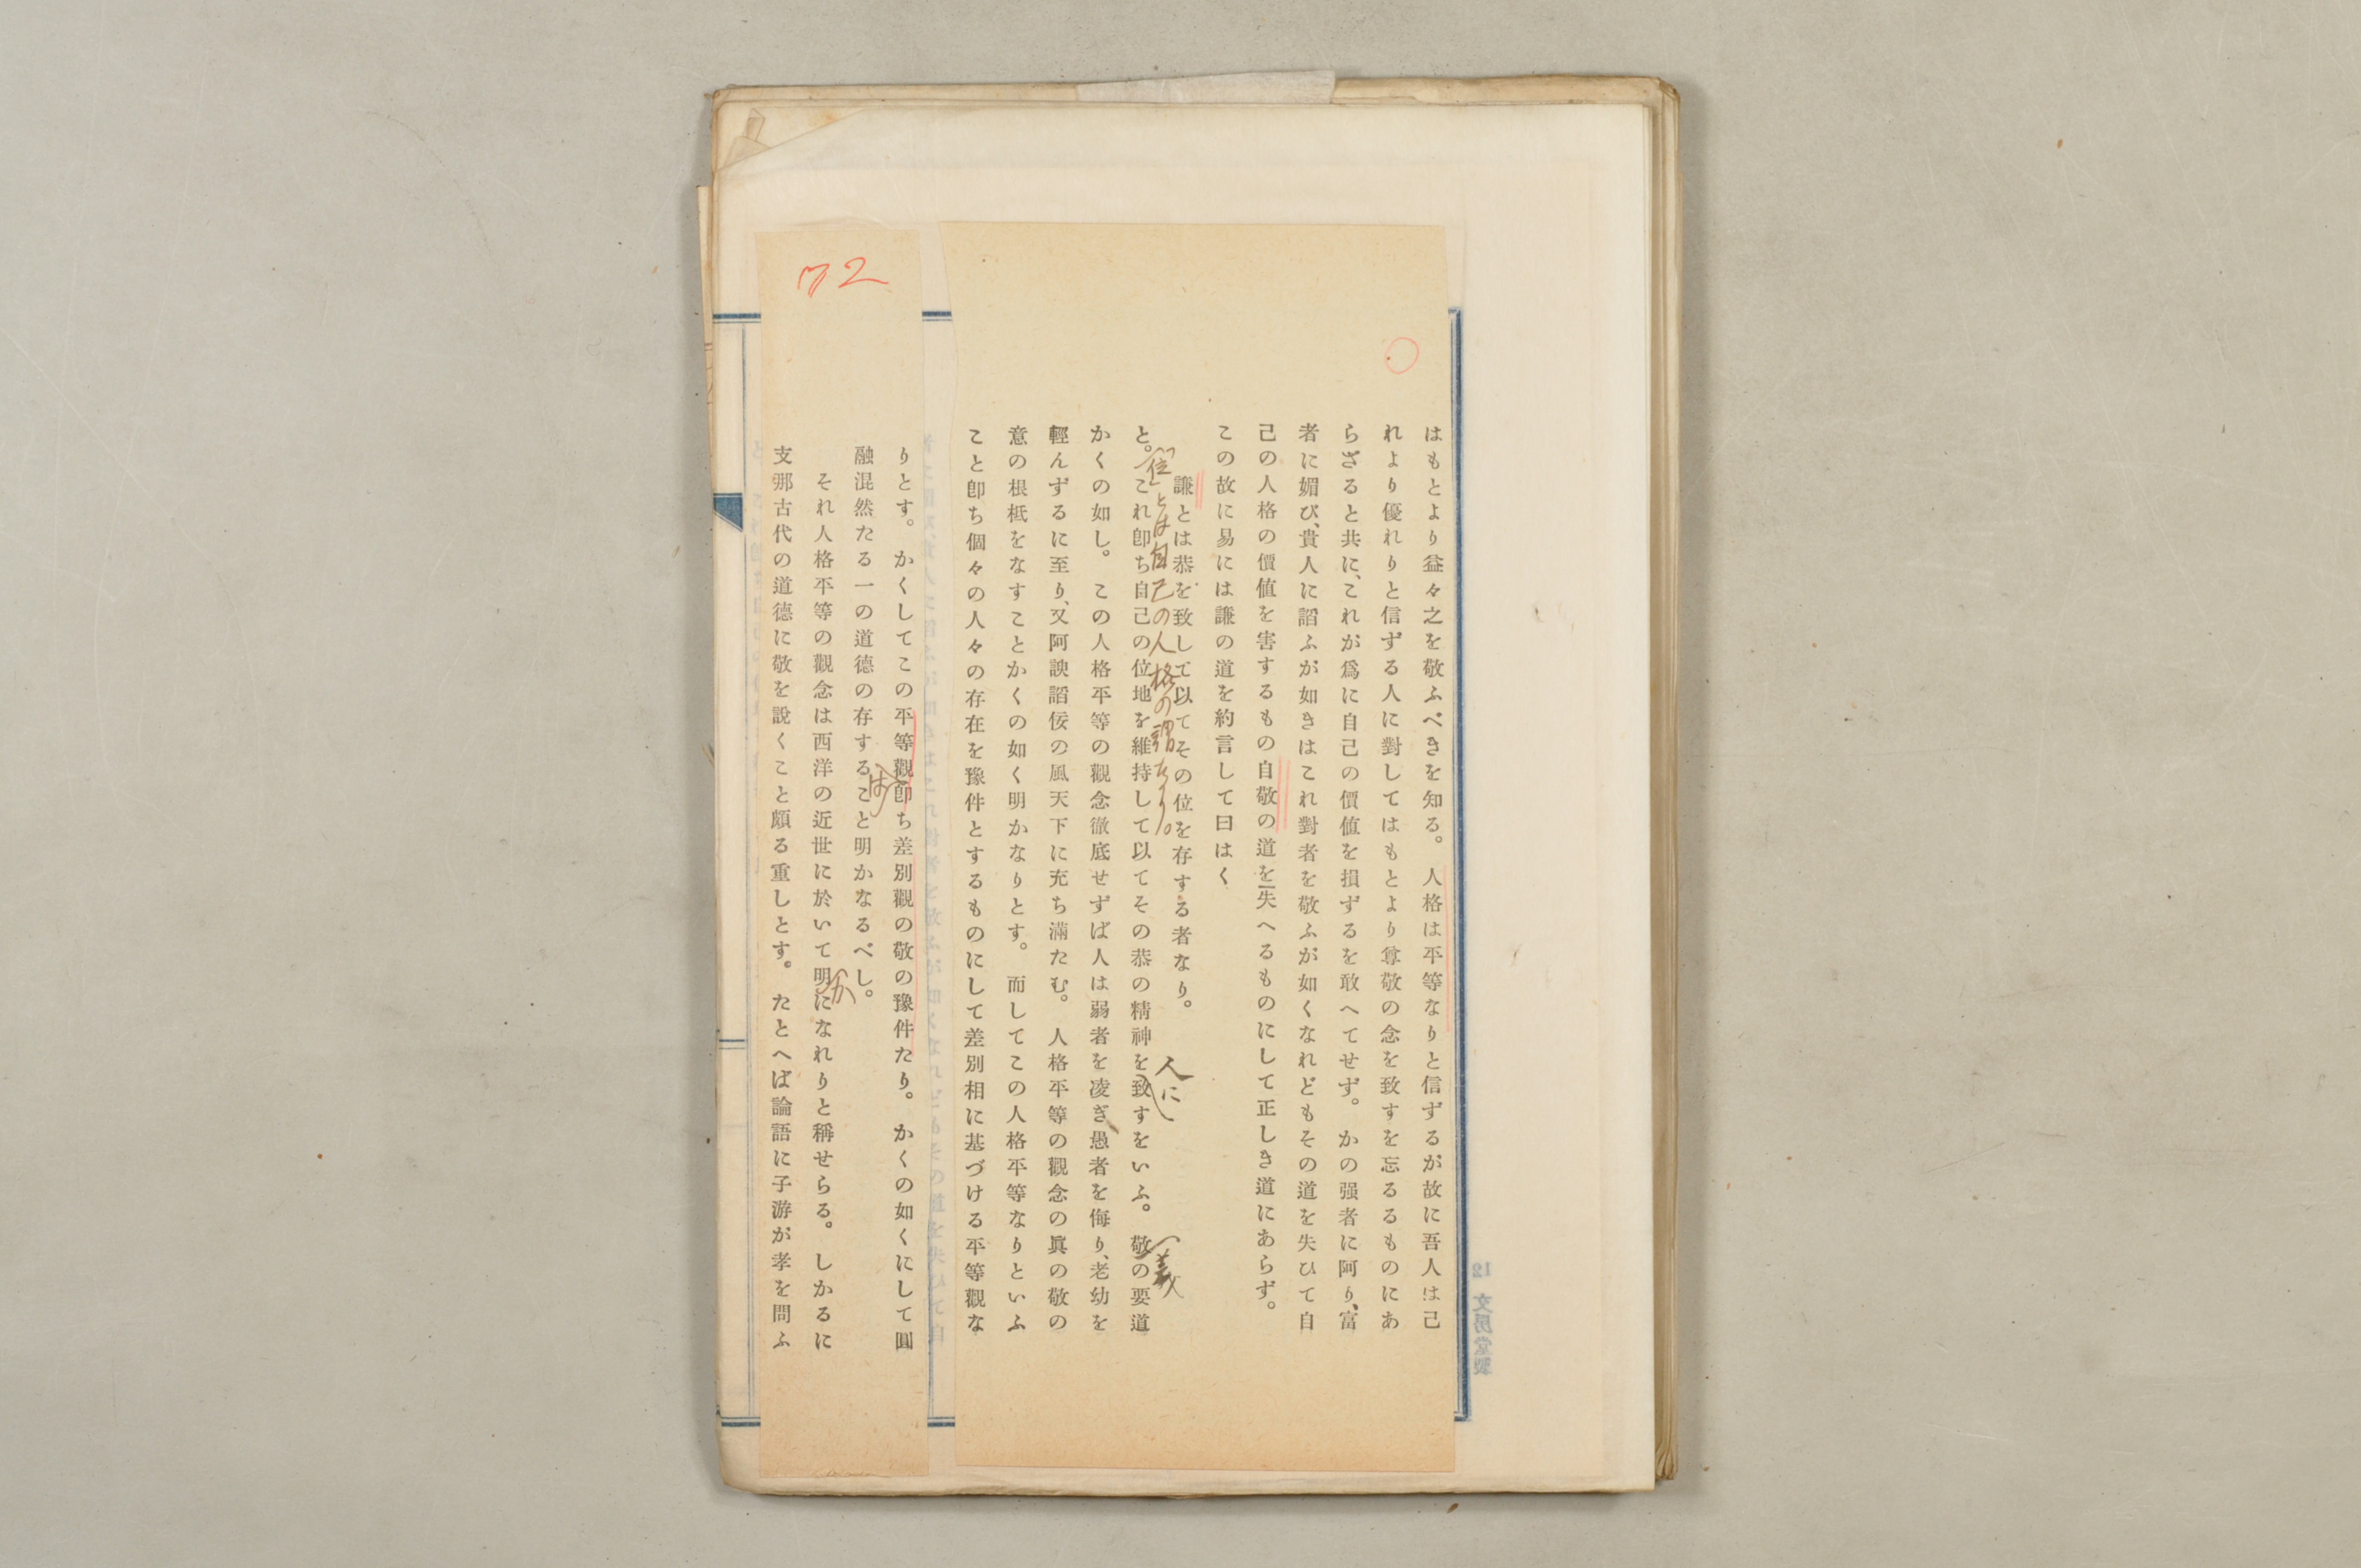 はもとより益々之を敬ふべきを知る。人格は平等なりと信ずるが故に吾人は己
れより優れりと信ずる人に對してはもとより尊敬の念を致すを忘るるものにあ
らざると共に、これが爲に自己の價値を損ずるを敢へてせず。かの强者に阿り、富
者に媚び、貴人に諂ふが如きはこれ對者を敬ふが如くなれどもその道を失ひて自
己の人格の價値を害するもの自敬の道を失へるものにして正しき道にあらず。
この故に易には謙の道を約言して曰はく
謙とは恭を致して以てその位を存する者なり。
「位」とは自己の人格の謂なり。
人に
義
と。これ卽ち自己の位地を維持して以てその恭の精神を致すをいふ。敬の要道
かくの如し。この人格平等の觀念徹底せずば人は弱者を凌ぎ愚者を侮り、老幼を
輕んずるに至り、又阿諛諂佞の風天下に充ち滿たむ。人格平等の觀念の眞の敬の
意の根柢をなすことかくの如く明かなりとす。而してこの人格平等なりといふ
こと卽ち個々の人々の存在を豫件とするものにして差別相に基づける平等觀な
72
りとす。かくしてこの平等觀卽ち差別觀の敬の豫件たり。かくの如くにして圓
は
融混然たる一の道德の存すること明かなるべし。
か
それ人格平等の觀念は西洋の近世に於いて明になれりと稱せらる。しかるに
支那古代の道德に敬を說くこと頗る重しとす。たとへば論語に子游が孝を問ふ
12 文房堂製